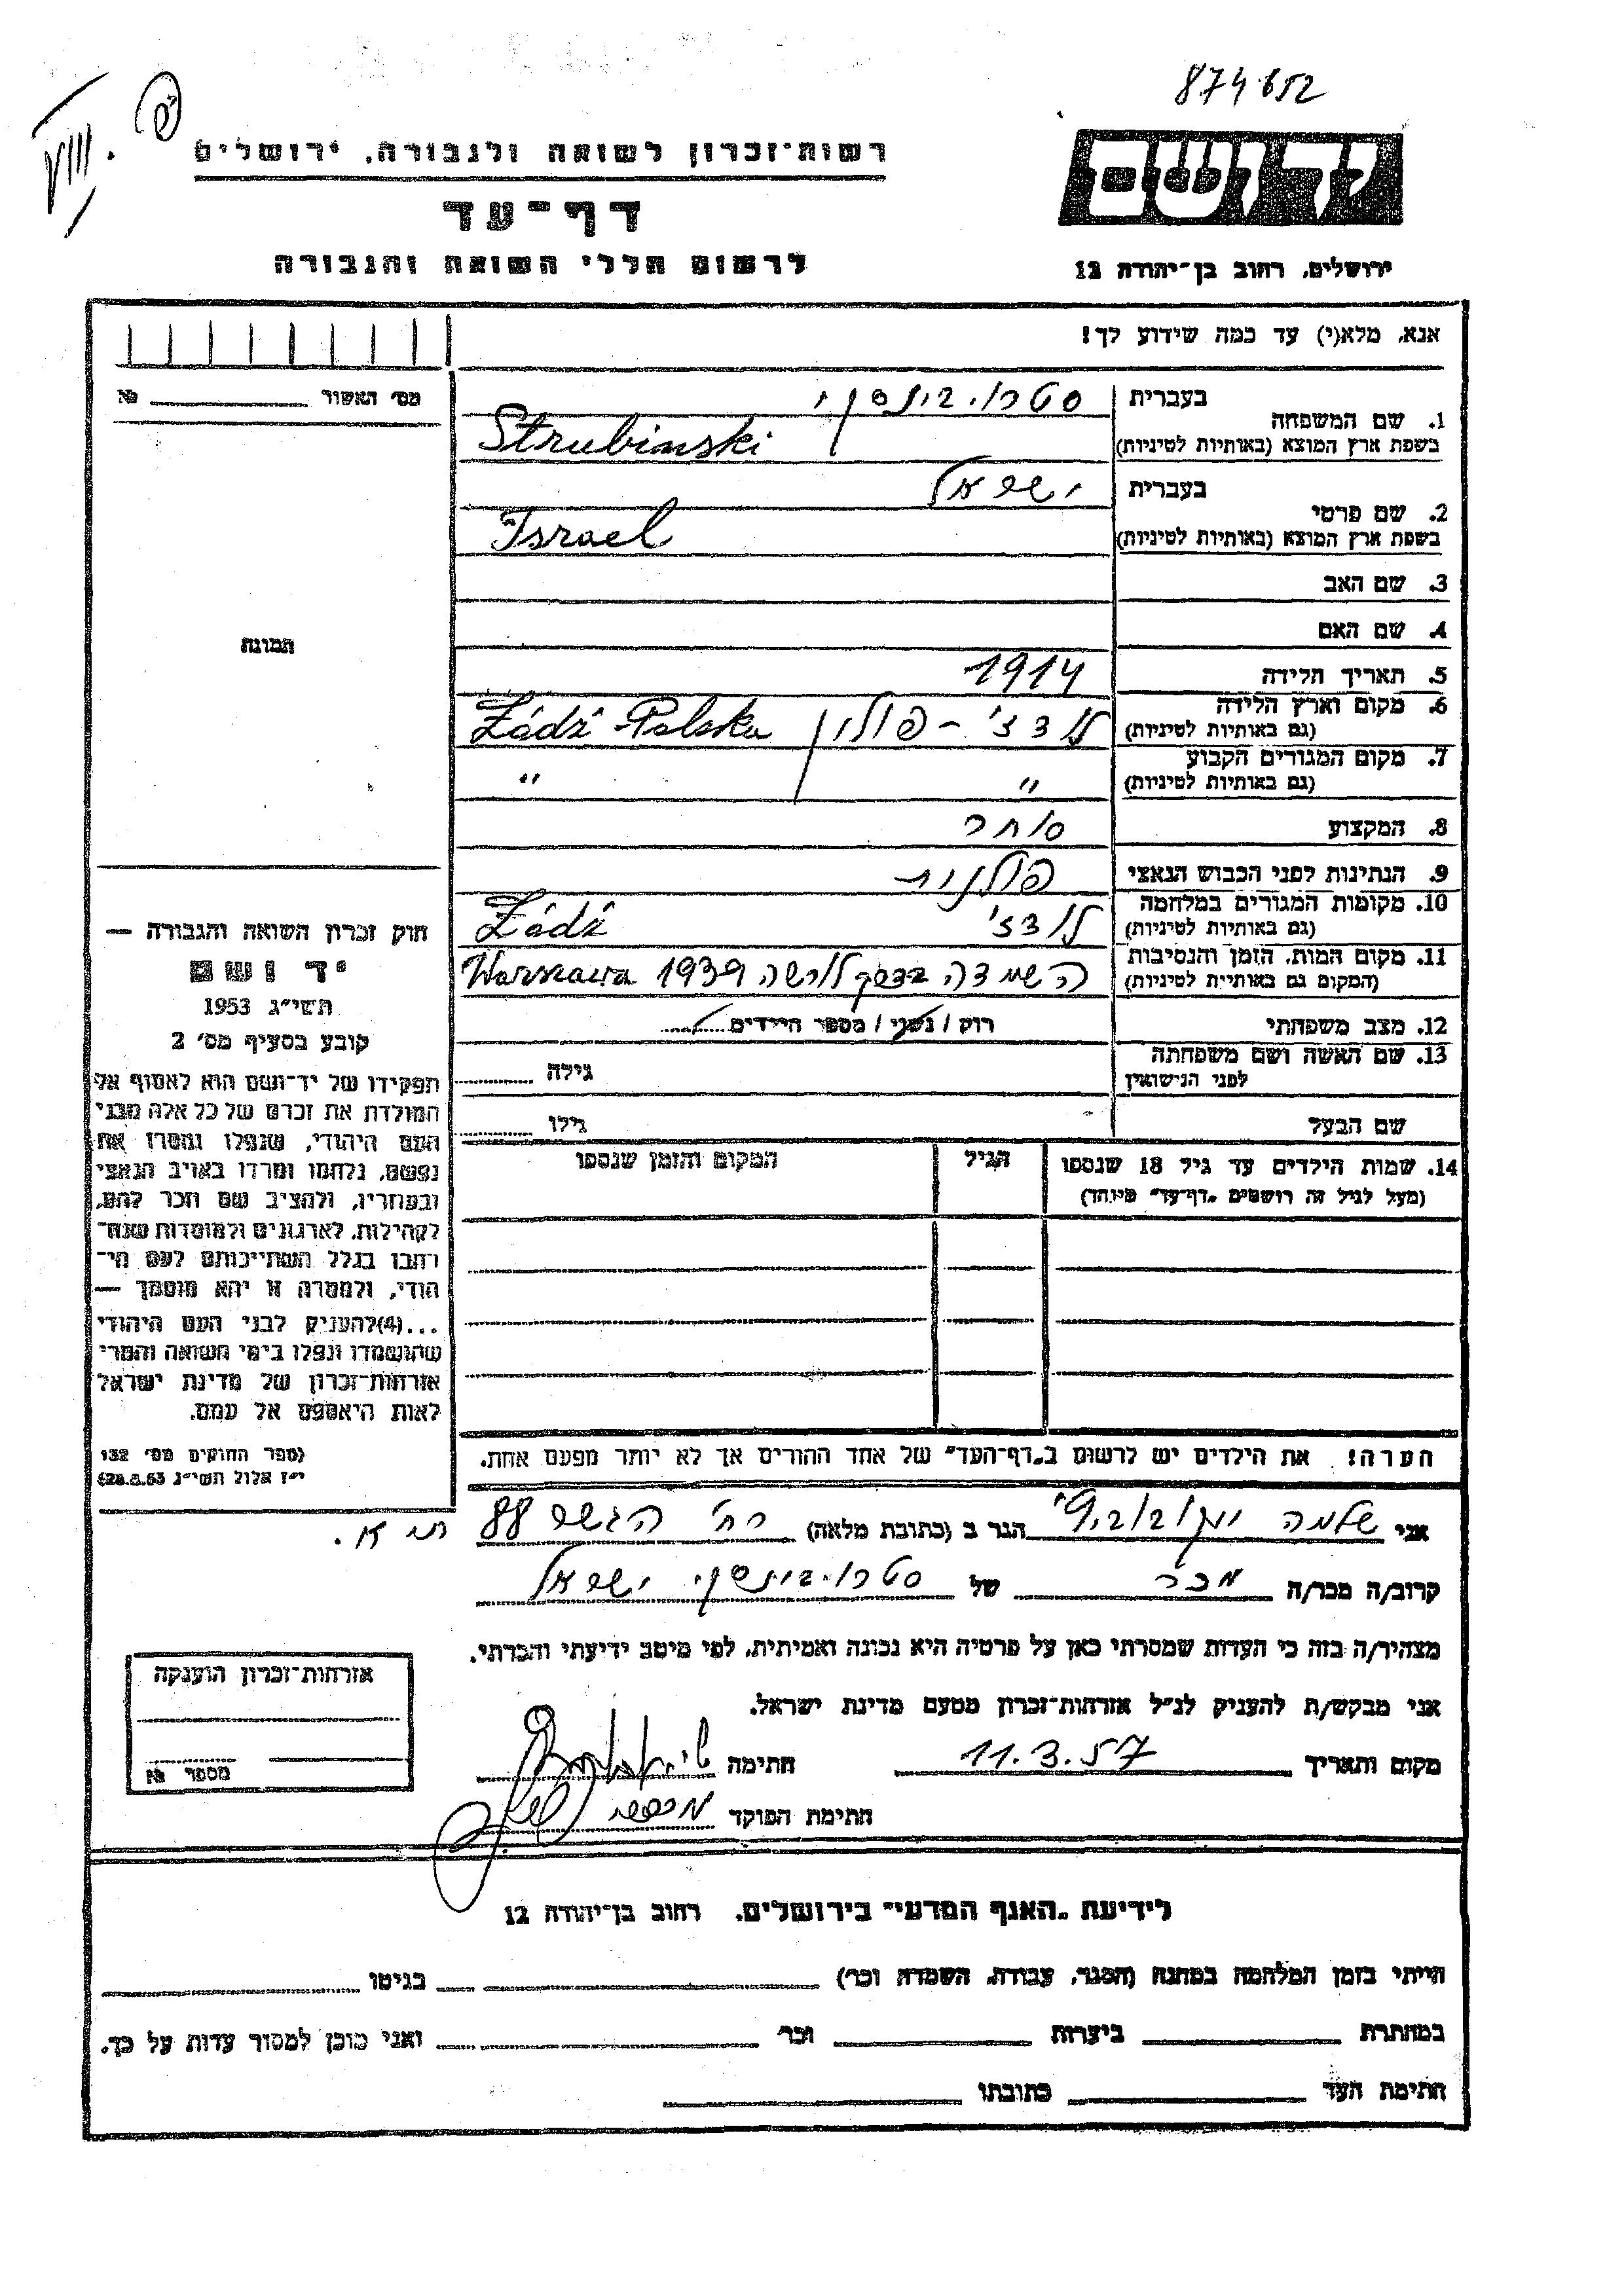 874652
VIII.
רשות־זכרון לשואה ולגבורה, ירושלים
יד ושם
דף־עד
לרשום חללי השואה והגבורה
ירושלים, רחוב בן־יהודה 12
אנא, מלא(י) עד כמה שידוע לך!
מס׳ האשור № 
1. שם המשפחה
בעברית
סטרובינסקי
בשפת ארץ המוצא (באותיות לטיניות)
Strubinski
2. שם פרטי
בעברית
ישראל
בשפת ארץ המוצא (באותיות לטיניות)
Israel
3. שם האב
4. שם האם
תמונה
5. תאריך הלידה 1914
6. מקום וארץ הלידה
(גם באותיות לטיניות)
לודז׳ - פולין Łódź Polska
7. מקום המגורים הקבוע
(גם באותיות לטיניות)
" "
8. המקצוע סוחר
9. הנתינות לפני הכבוש הנאצי פולנית
10. מקומות המגורים במלחמה
(גם באותיות לטיניות)
לודז׳ Łódź
11. מקום המות, הזמן והנסיבות
(המקום גם באותיות לטיניות)
ורשה 1939 Warszawa
12. מצב משפחתי רוק / נשוי / מספר הילדים
13. שם האשה ושם משפחתה
לפני הנישואין
גילה
שם הבעל גילו
14. שמות הילדים עד גיל 18 שנספו
(מעל לגיל זה רושמים „דף־עד” מיוחד)
הגיל
המקום והזמן שנספו
חוק זכרון השואה והגבורה —
יד ושם
תשי״ג 1953
קובע בסעיף מס׳ 2
תפקידו של יד־ושם הוא לאסוף אל
המולדת את זכרם של כל אלה מבני
העם היהודי, שנפלו ומסרו את
נפשם, נלחמו ומרדו באויב הנאצי
ובעוזריו, ולהציב שם וזכר להם,
לקהילות, לארגונים ולמוסדות שנח־
רבו בגלל השתייכותם לעם הי־
הודי, ולמטרה זו יהא מוסמך —
...(4)להעניק לבני העם היהודי
שהושמדו ונפלו בימי השואה והמרי
אזרחות־זכרון של מדינת ישראל
לאות היאספם אל עמם.
(ספר החוקים מס׳ 132
י״ז אלול תשי״ג 28.8.53)
הערה! את הילדים יש לרשום ב„דף־העד” של אחד ההורים אך לא יותר מפעם אחת.
אני שלמה הגר ב (כתובת מלאה) רח׳ הגשר 88 ת״א.
קרוב/ה מכר/ה מכר של סטרובינסקי ישראל
מצהיר/ה בזה כי העדות שמסרתי כאן על פרטיה היא נכונה ואמיתית, לפי מיטב ידיעתי והכרתי.
אני מבקש/ת להעניק לנ״ל אזרחות־זכרון מטעם מדינת ישראל.
מקום ותאריך 11.3.57 חתימה
חתימת הפוקד
אזרחות־זכרון הוענקה
מספר №
לידיעת „האגף המדעי” בירושלים, רחוב בן־יהודה 12
הייתי בזמן המלחמה במחנה (הסגר, עבודה, השמדה וכו׳) בגיטו
במחתרת ביערות וכו׳ ואני מוכן למסור עדות על כך.
חתימת העד כתובתו